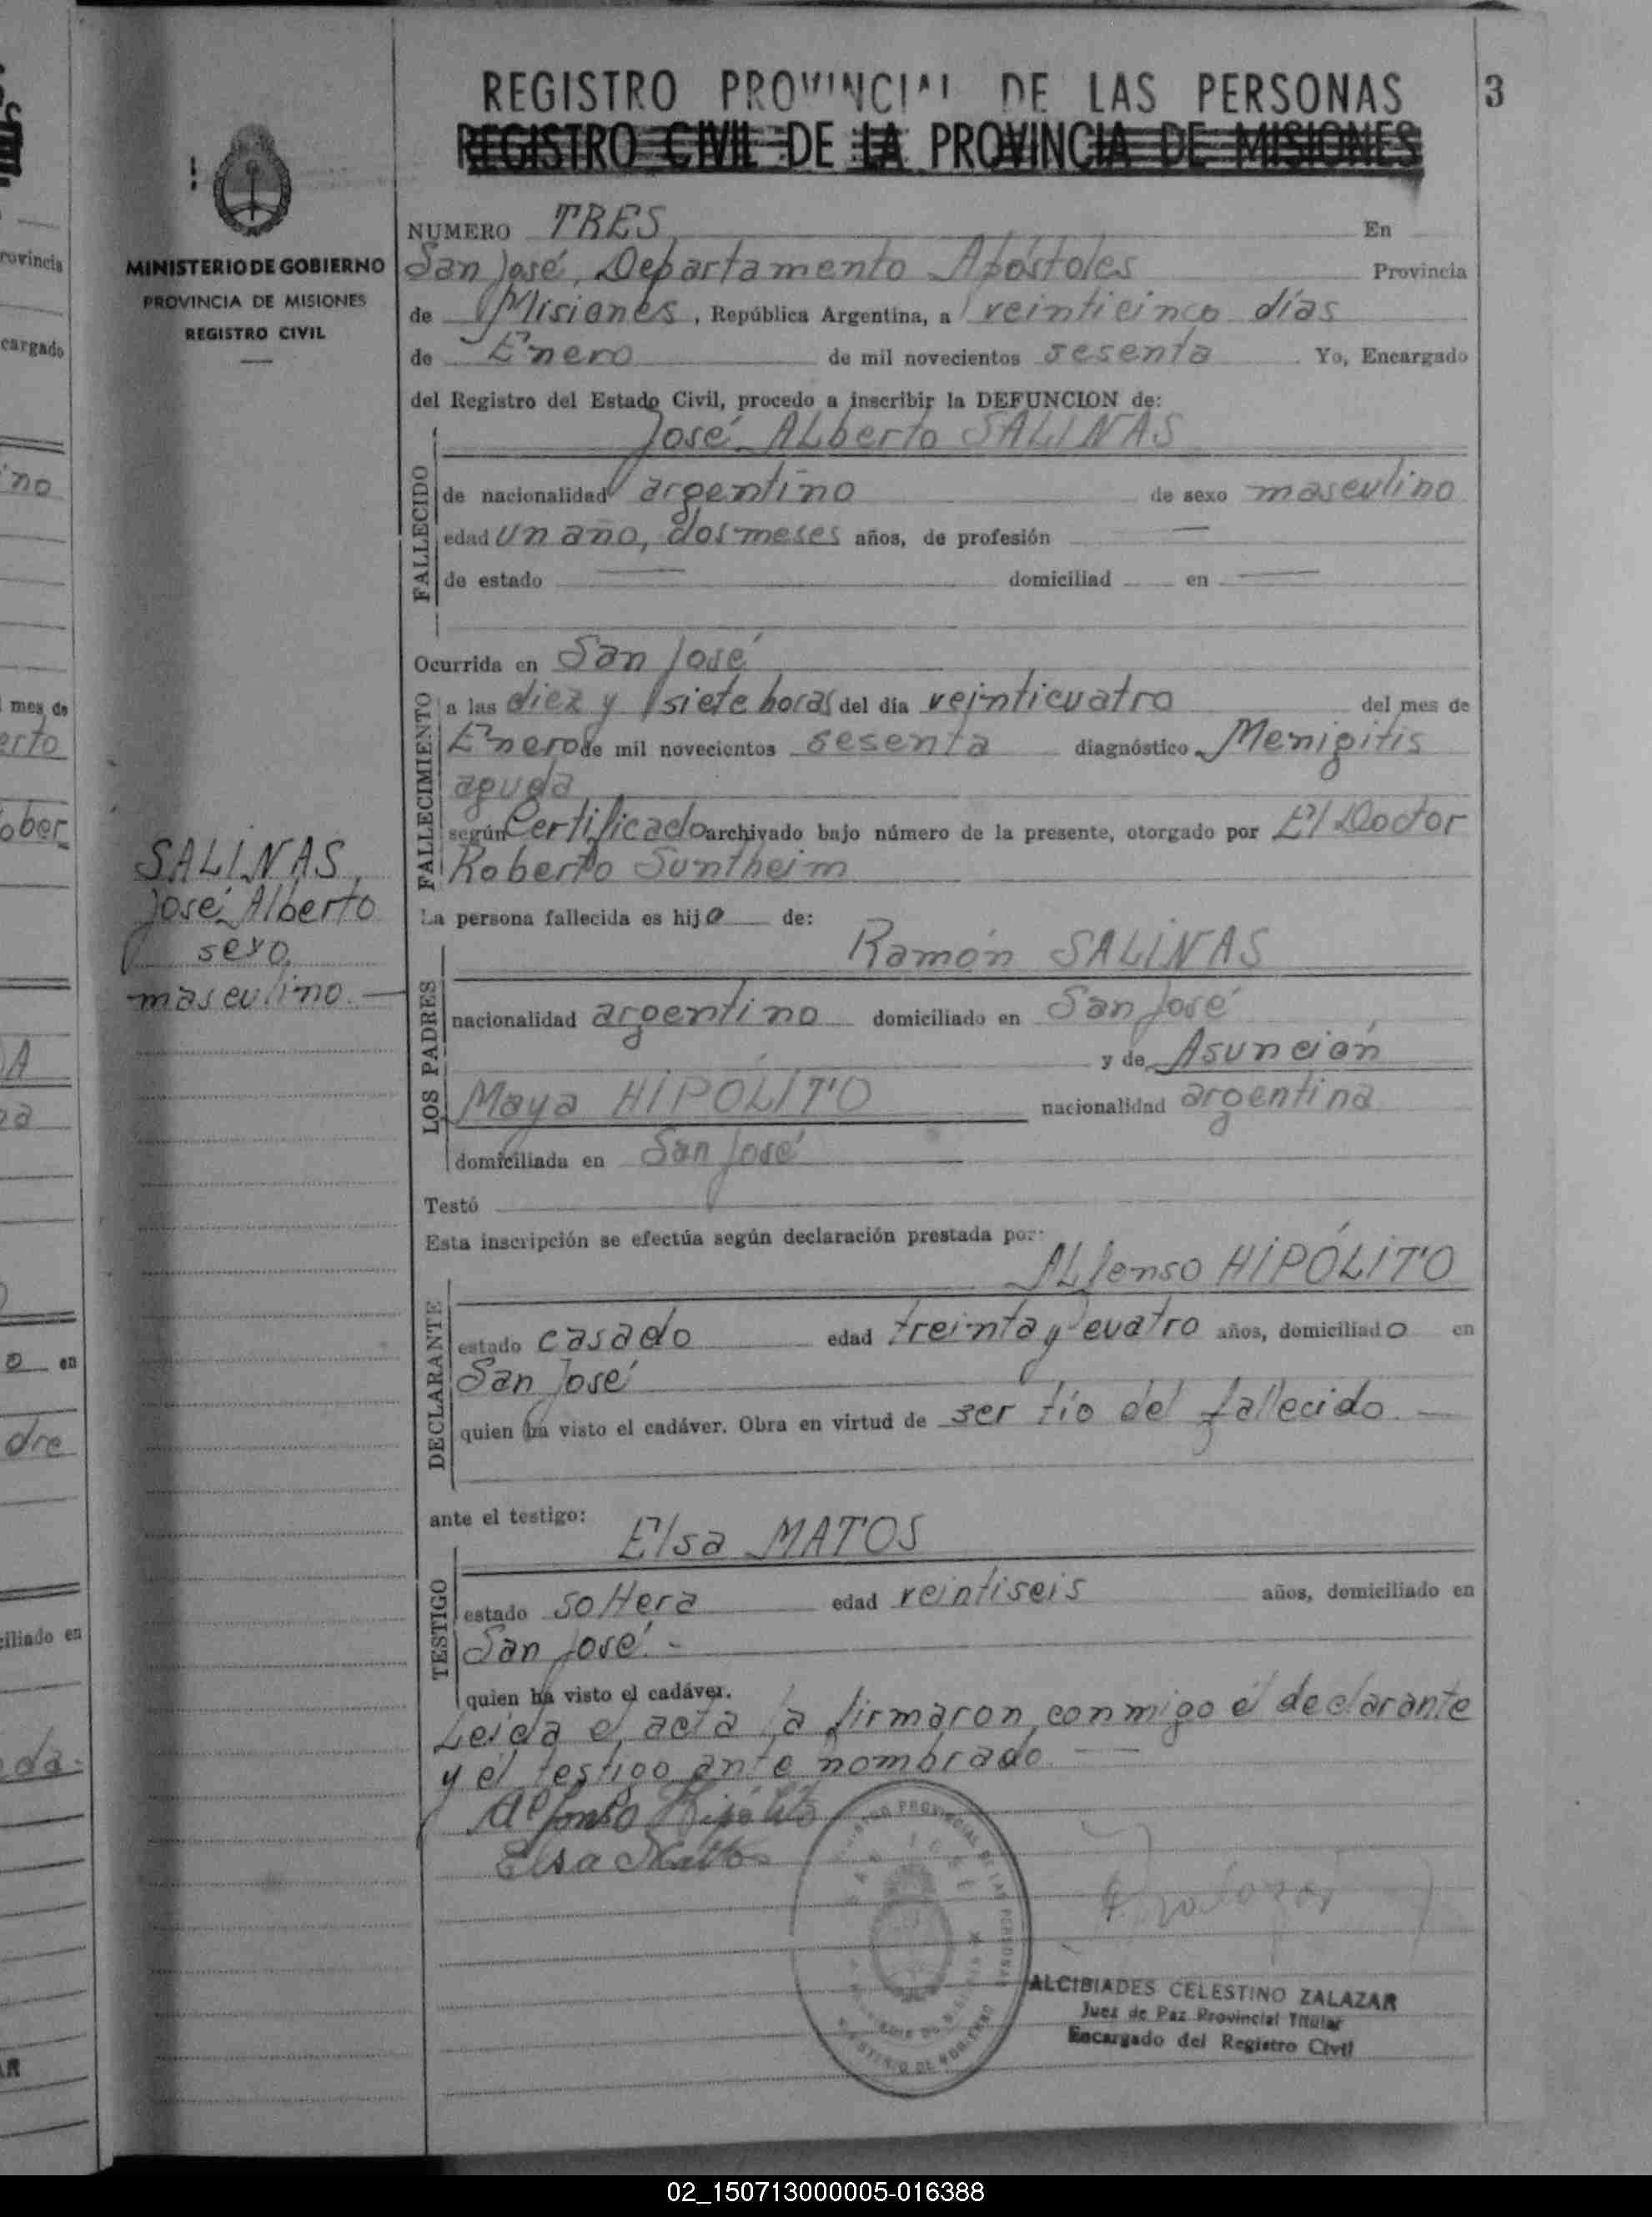 REGISTRO PROVINCIAL DE LAS PERSONAS
3
REGISTRO CIVIL DE LA PROVINCIA DE MISIONES
MINISTERIO DE GOBIERNO
PROVINCIA DE MISIONES
REGISTRO CIVIL
NUMERO TRES En
San José, Departamento Apóstoles Provincia
de Misiones, República Argentina, a veinticinco días
de Enero de mil novecientos sesenta. Yo, Encargado
del Registro del Estado Civil, procedo a inscribir la DEFUNCION de:
José ALberto SALINAS
FALLECIDO
de nacionalidad argentino de sexo masculino
edad un año, dos meses años, de profesión —
de estado — domiciliad en —
Ocurrida en San José
FALLECIMIENTO
a las diez y siete horas del día veinticuatro del mes de
Enero de mil novecientos sesenta diagnóstico Menigitis
aguda
según Certificado archivado bajo número de la presente, otorgado por El Doctor
Roberto Suntheim
SALINAS,
José Alberto
sexo
masculino. —
La persona fallecida es hijo de:
LOS PADRES
Ramón SALINAS
nacionalidad argentino domiciliado en San José
y de Asunción
Maya HIPÓLITO nacionalidad argentina
domiciliada en San José
Testó
Esta inscripción se efectúa según declaración prestada por:
ALfonso HIPÓLITO
DECLARANTE
estado casado edad treinta y cuatro años, domiciliado en
San José
quien ha visto el cadáver. Obra en virtud de ser tío del fallecido. —
ante el testigo:
Elsa MATOS
TESTIGO
estado soltera edad veintiseis años, domiciliado en
San José. -
quien ha visto el cadáver.
Leída el acta la firmaron conmigo el declarante
y el testigo ante nombrado. —
Alfonso Hipólito
Elsa Mattos
REGISTRO PROVINCIAL DE LAS PERSONAS
SAN JOSE
MINISTERIO DE GOBIERNO
ALCIBIADES CELESTINO ZALAZAR
Juez de Paz Provincial Titular
Encargado del Registro Civil
02_150713000005-016388